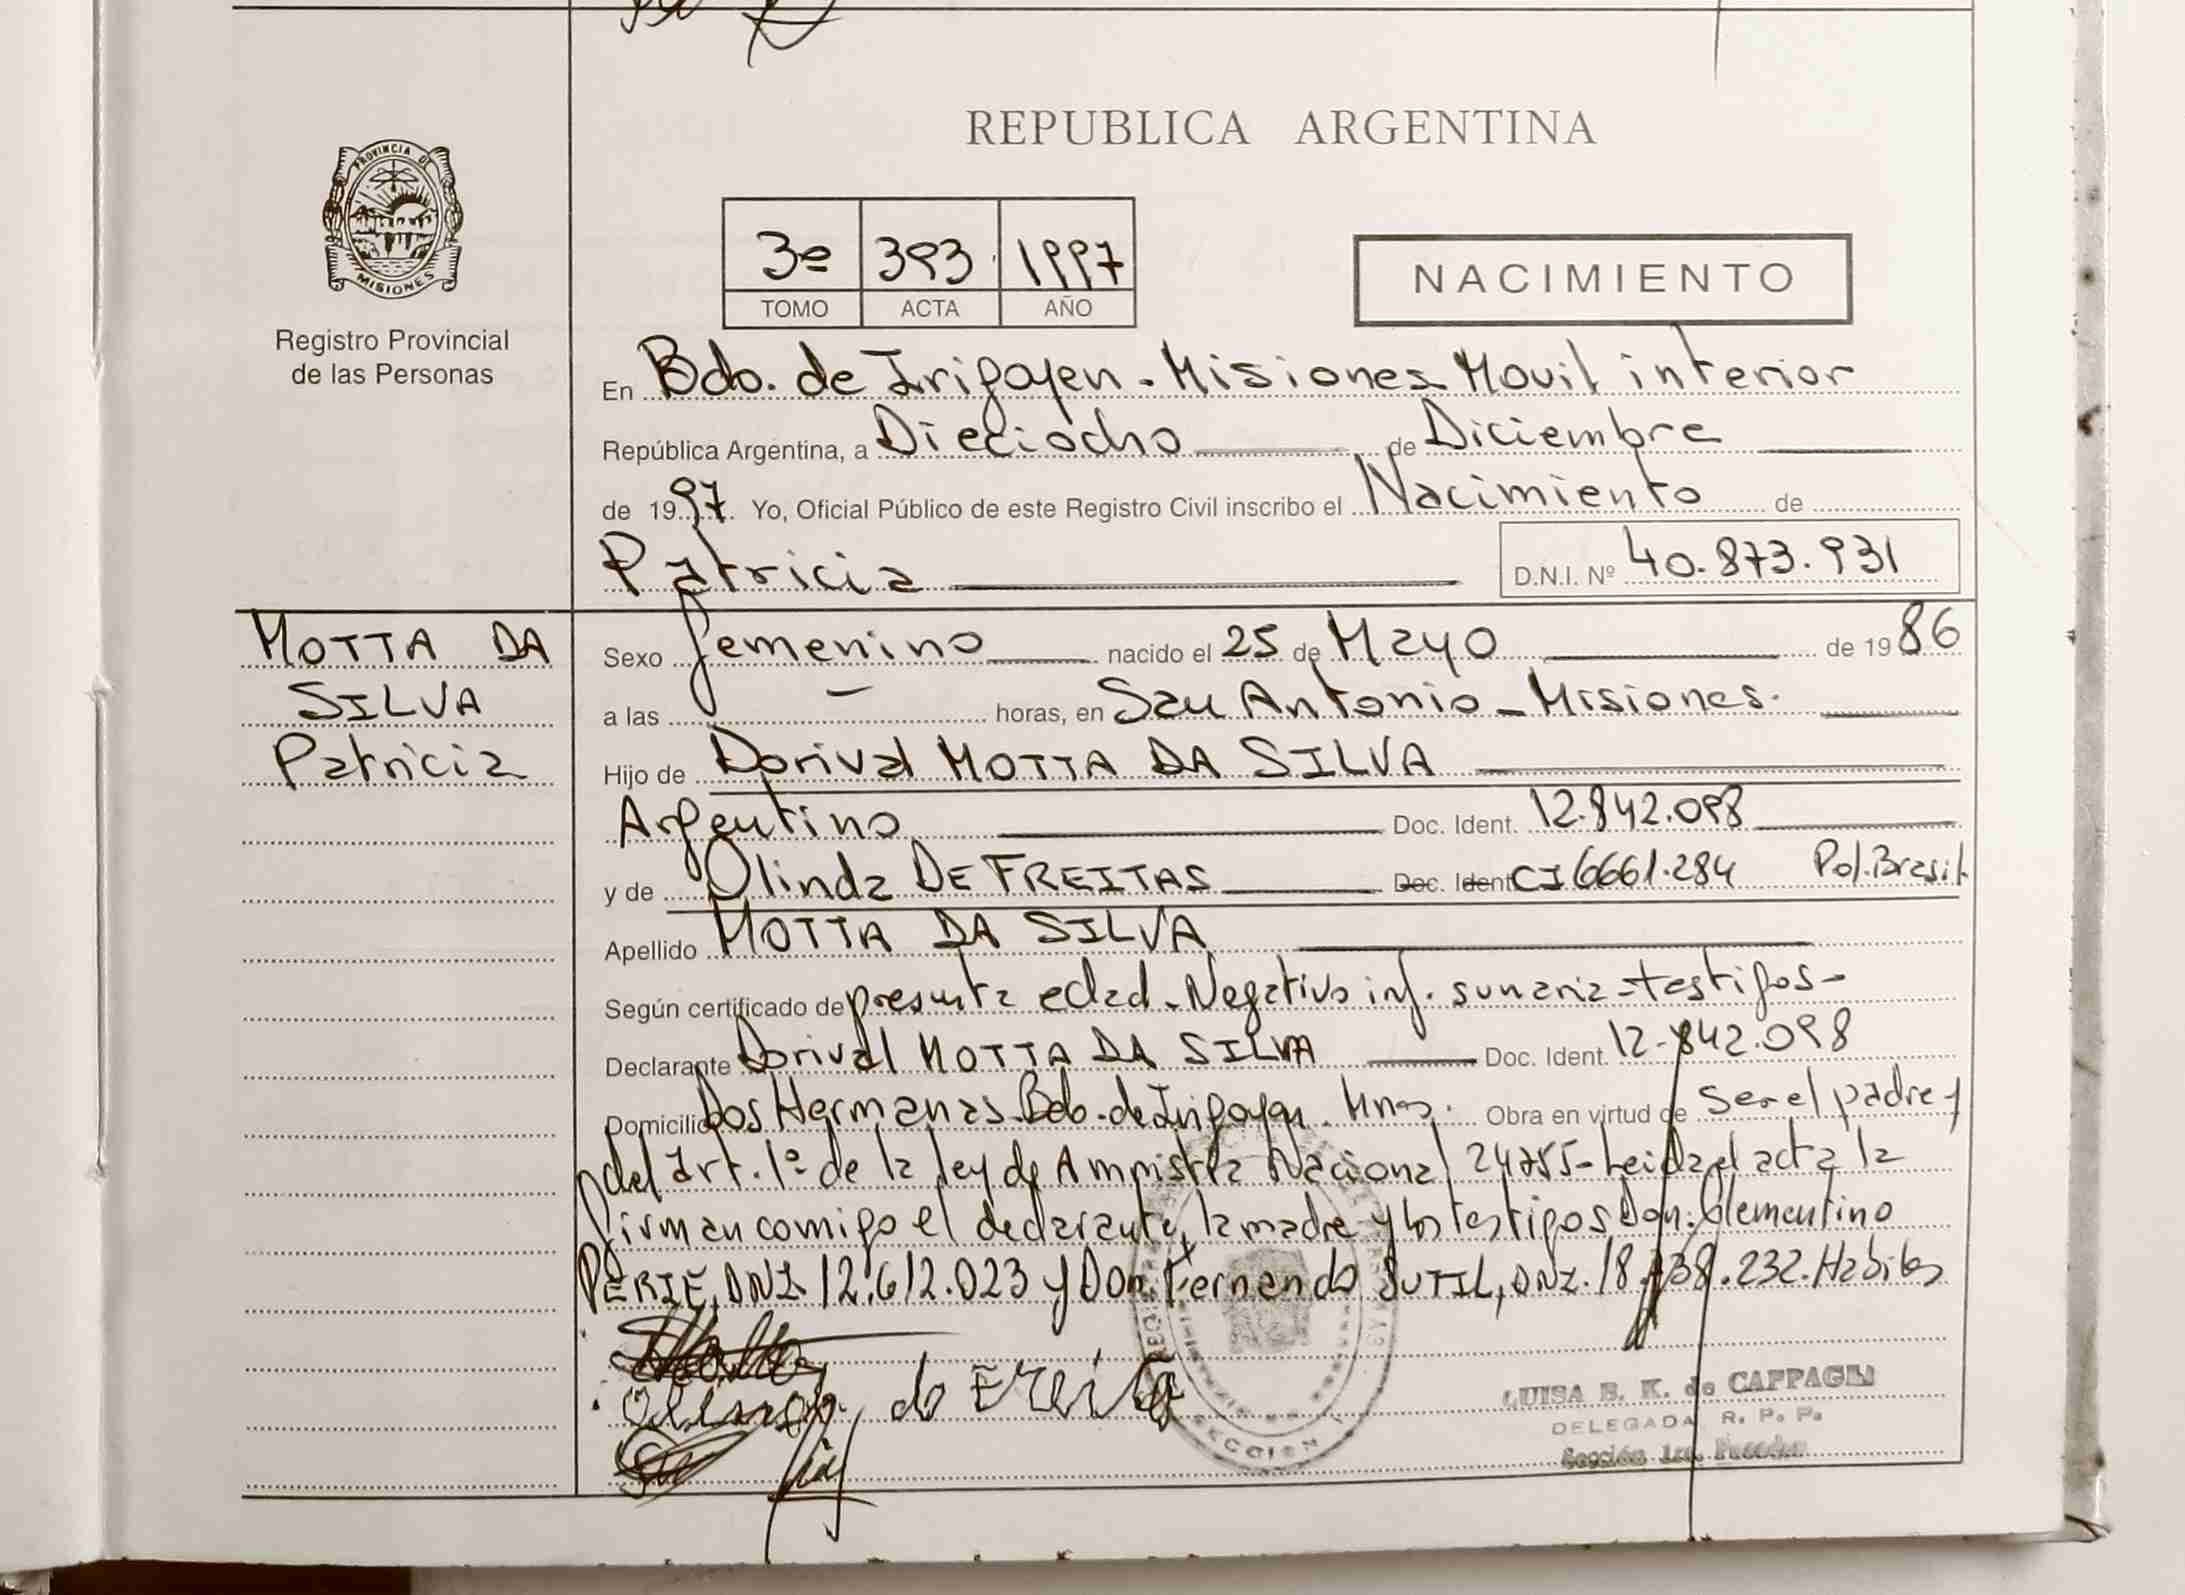 REPUBLICA ARGENTINA
PROVINCIA DE
MISIONES
Registro Provincial
de las Personas
3º 393 1997
TOMO ACTA AÑO
NACIMIENTO
En Bdo. de Irigoyen - Misiones Movil interior
República Argentina, a Dieciocho de Diciembre
de 1997. Yo, Oficial Público de este Registro Civil inscribo el Nacimiento de
Patricia D.N.I. Nº 40.873.931
MOTTA DA
SILVA
Patricia
Sexo femenino nacido el 25 de Mayo de 1986
a las - horas, en San Antonio - Misiones.
Hijo de Dorival MOTTA DA SILVA
Argentino Doc. Ident. 12.842.098
y de Olinda DE FREITAS Doc. Ident CI 6661.284 Pol. Brasil
Apellido MOTTA DA SILVA
Según certificado de presunta edad - Negativo inf. sumaria - testigos -
Declarante Dorival MOTTA DA SILVA Doc. Ident. 12.842.098
Domicilio Dos Hermanas Bdo. de Irigoyen. Mnes. Obra en virtud de ser el padre y
del art. 1º de la ley de Amnistia Nacional 24755 - Leida el acta la
firman comigo el declarante, la madre y los testigos Don: Clementino
PERIE, DNI. 12.612.023 y Don: Fernando SUTIL, DNI. 18.738.232. Habiles
LUISA E. K. de CAPPAGLI
DELEGADA R. P. P.
Sección 1ra. Posadas